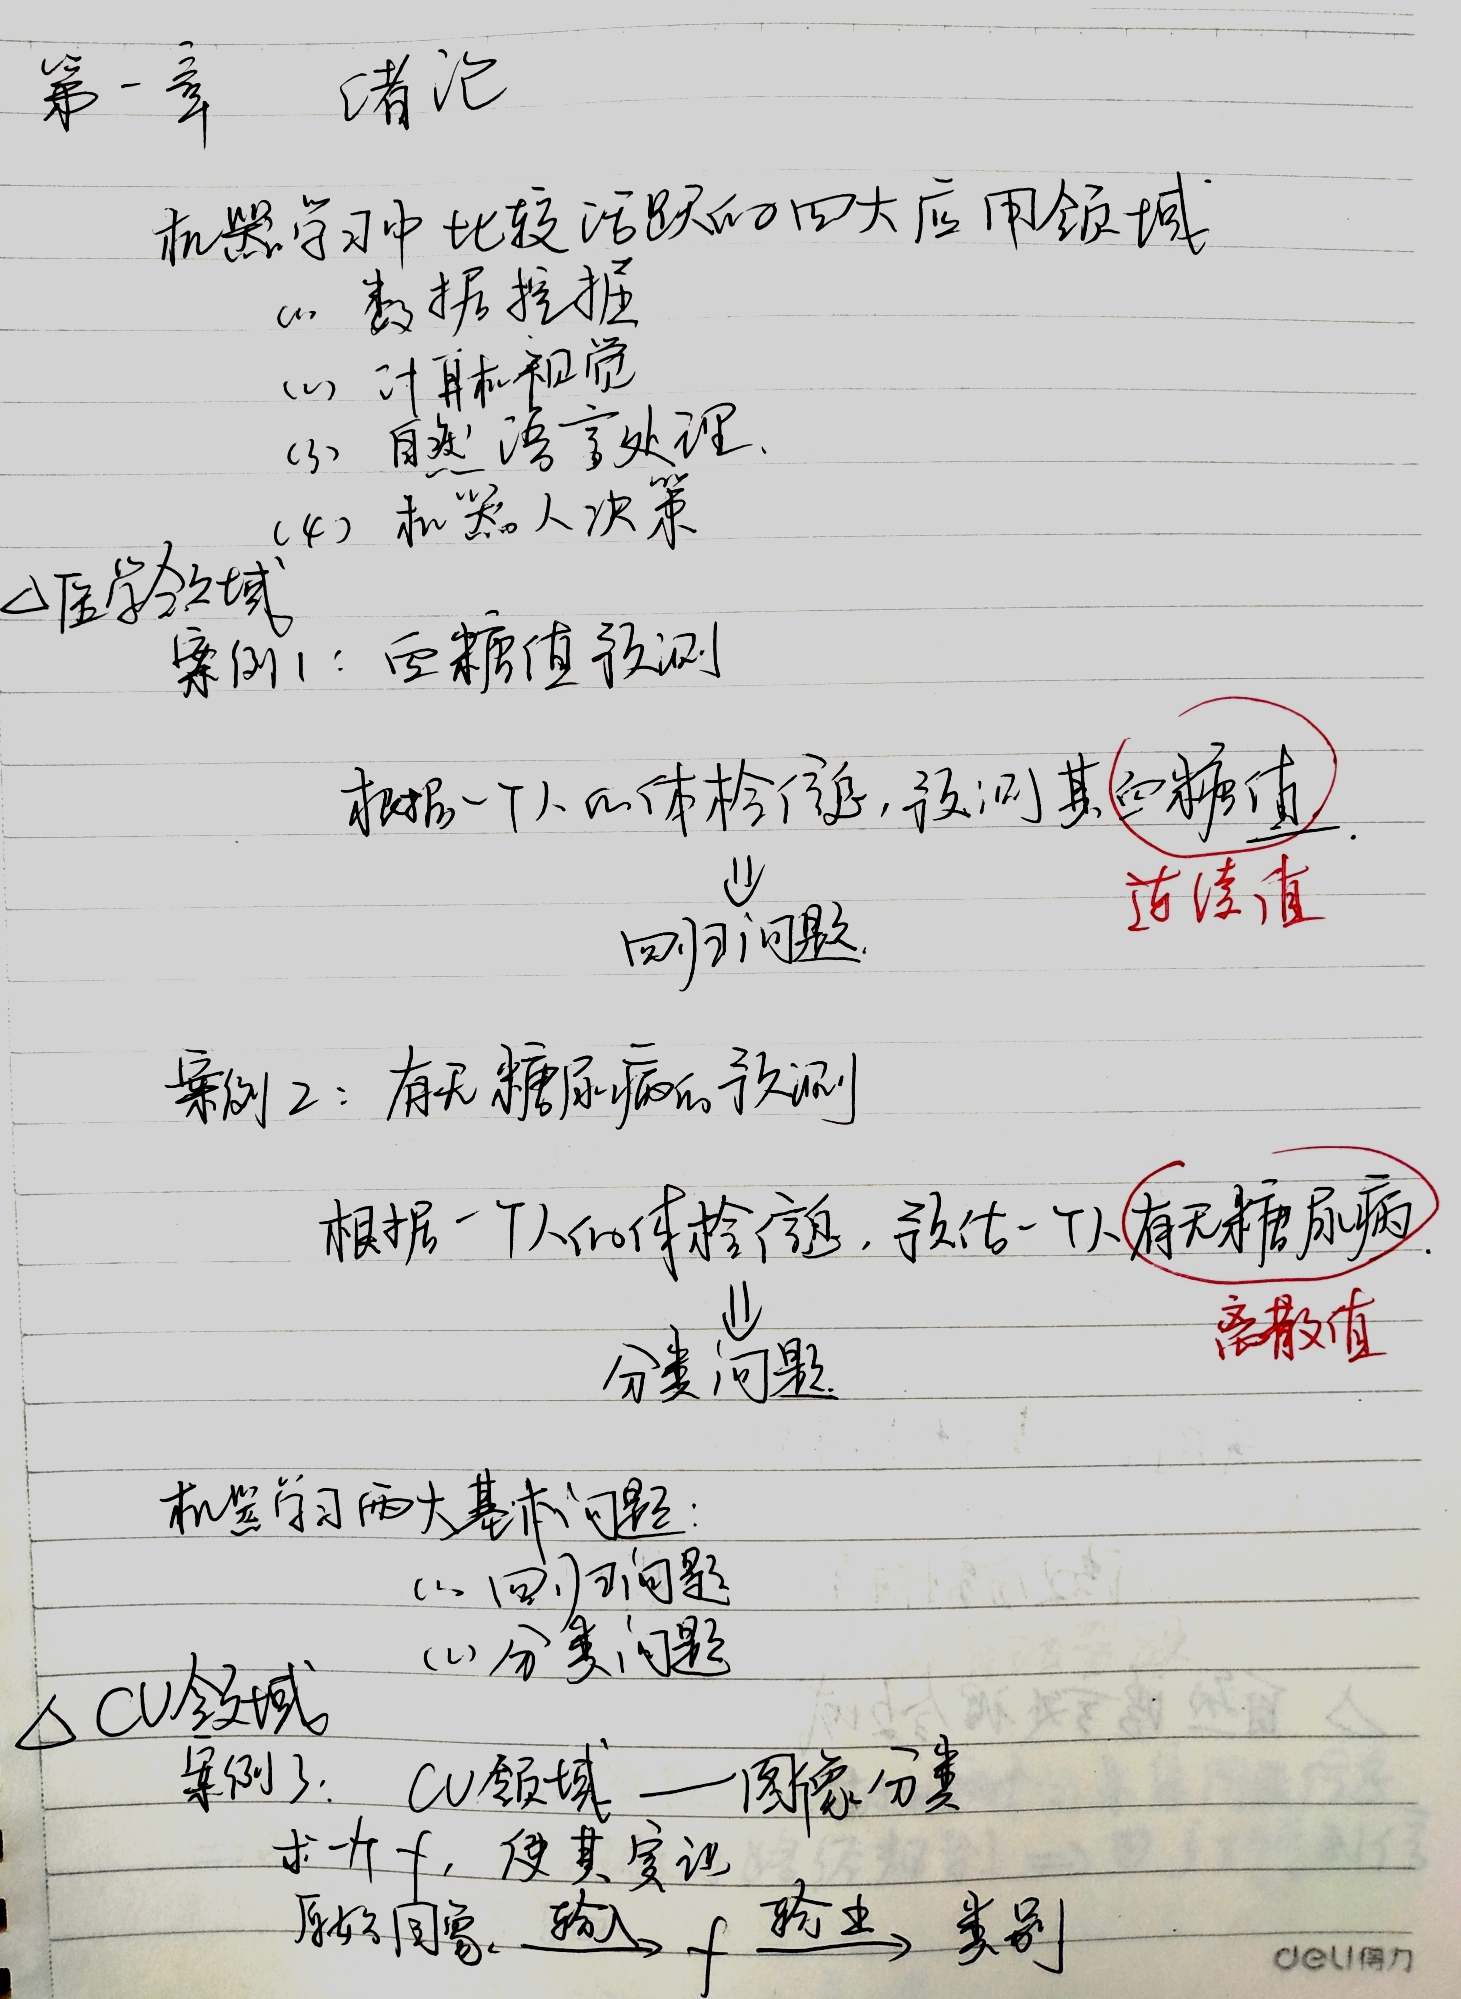 第一章 绪论
机器学习中比较活跃的四大应用领域
(1) 数据挖掘
(2) 计算机视觉
(3) 自然语言处理.
(4) 机器人决策
△医学领域
案例1: 血糖值预测
根据一个人的体检信息,预测其血糖值.
⇓ 连续值
回归问题.
案例2: 有无糖尿病的预测
根据一个人的体检信息,预估一个人有无糖尿病.
⇓ 离散值
分类问题.
机器学习两大基本问题:
(1) 回归问题
(2) 分类问题
△ CV领域
案例3: CV领域 — 图像分类
求一个f, 使其实现
原始图像 输入→ f 输出→ 类别
deli得力